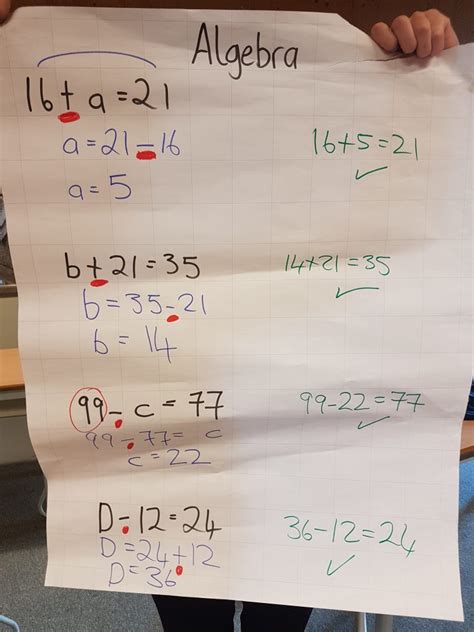 Algebra
16 + a = 21
a = 21 - 16
16 + 5 = 21 ✓
a = 5
b + 21 = 35
14 + 21 = 35 ✓
b = 35 - 21
b = 14
99 - c = 77
99 - 22 = 77 ✓
99 - 77 = c
c = 22
D - 12 = 24
36 - 12 = 24 ✓
D = 24 + 12
D = 36